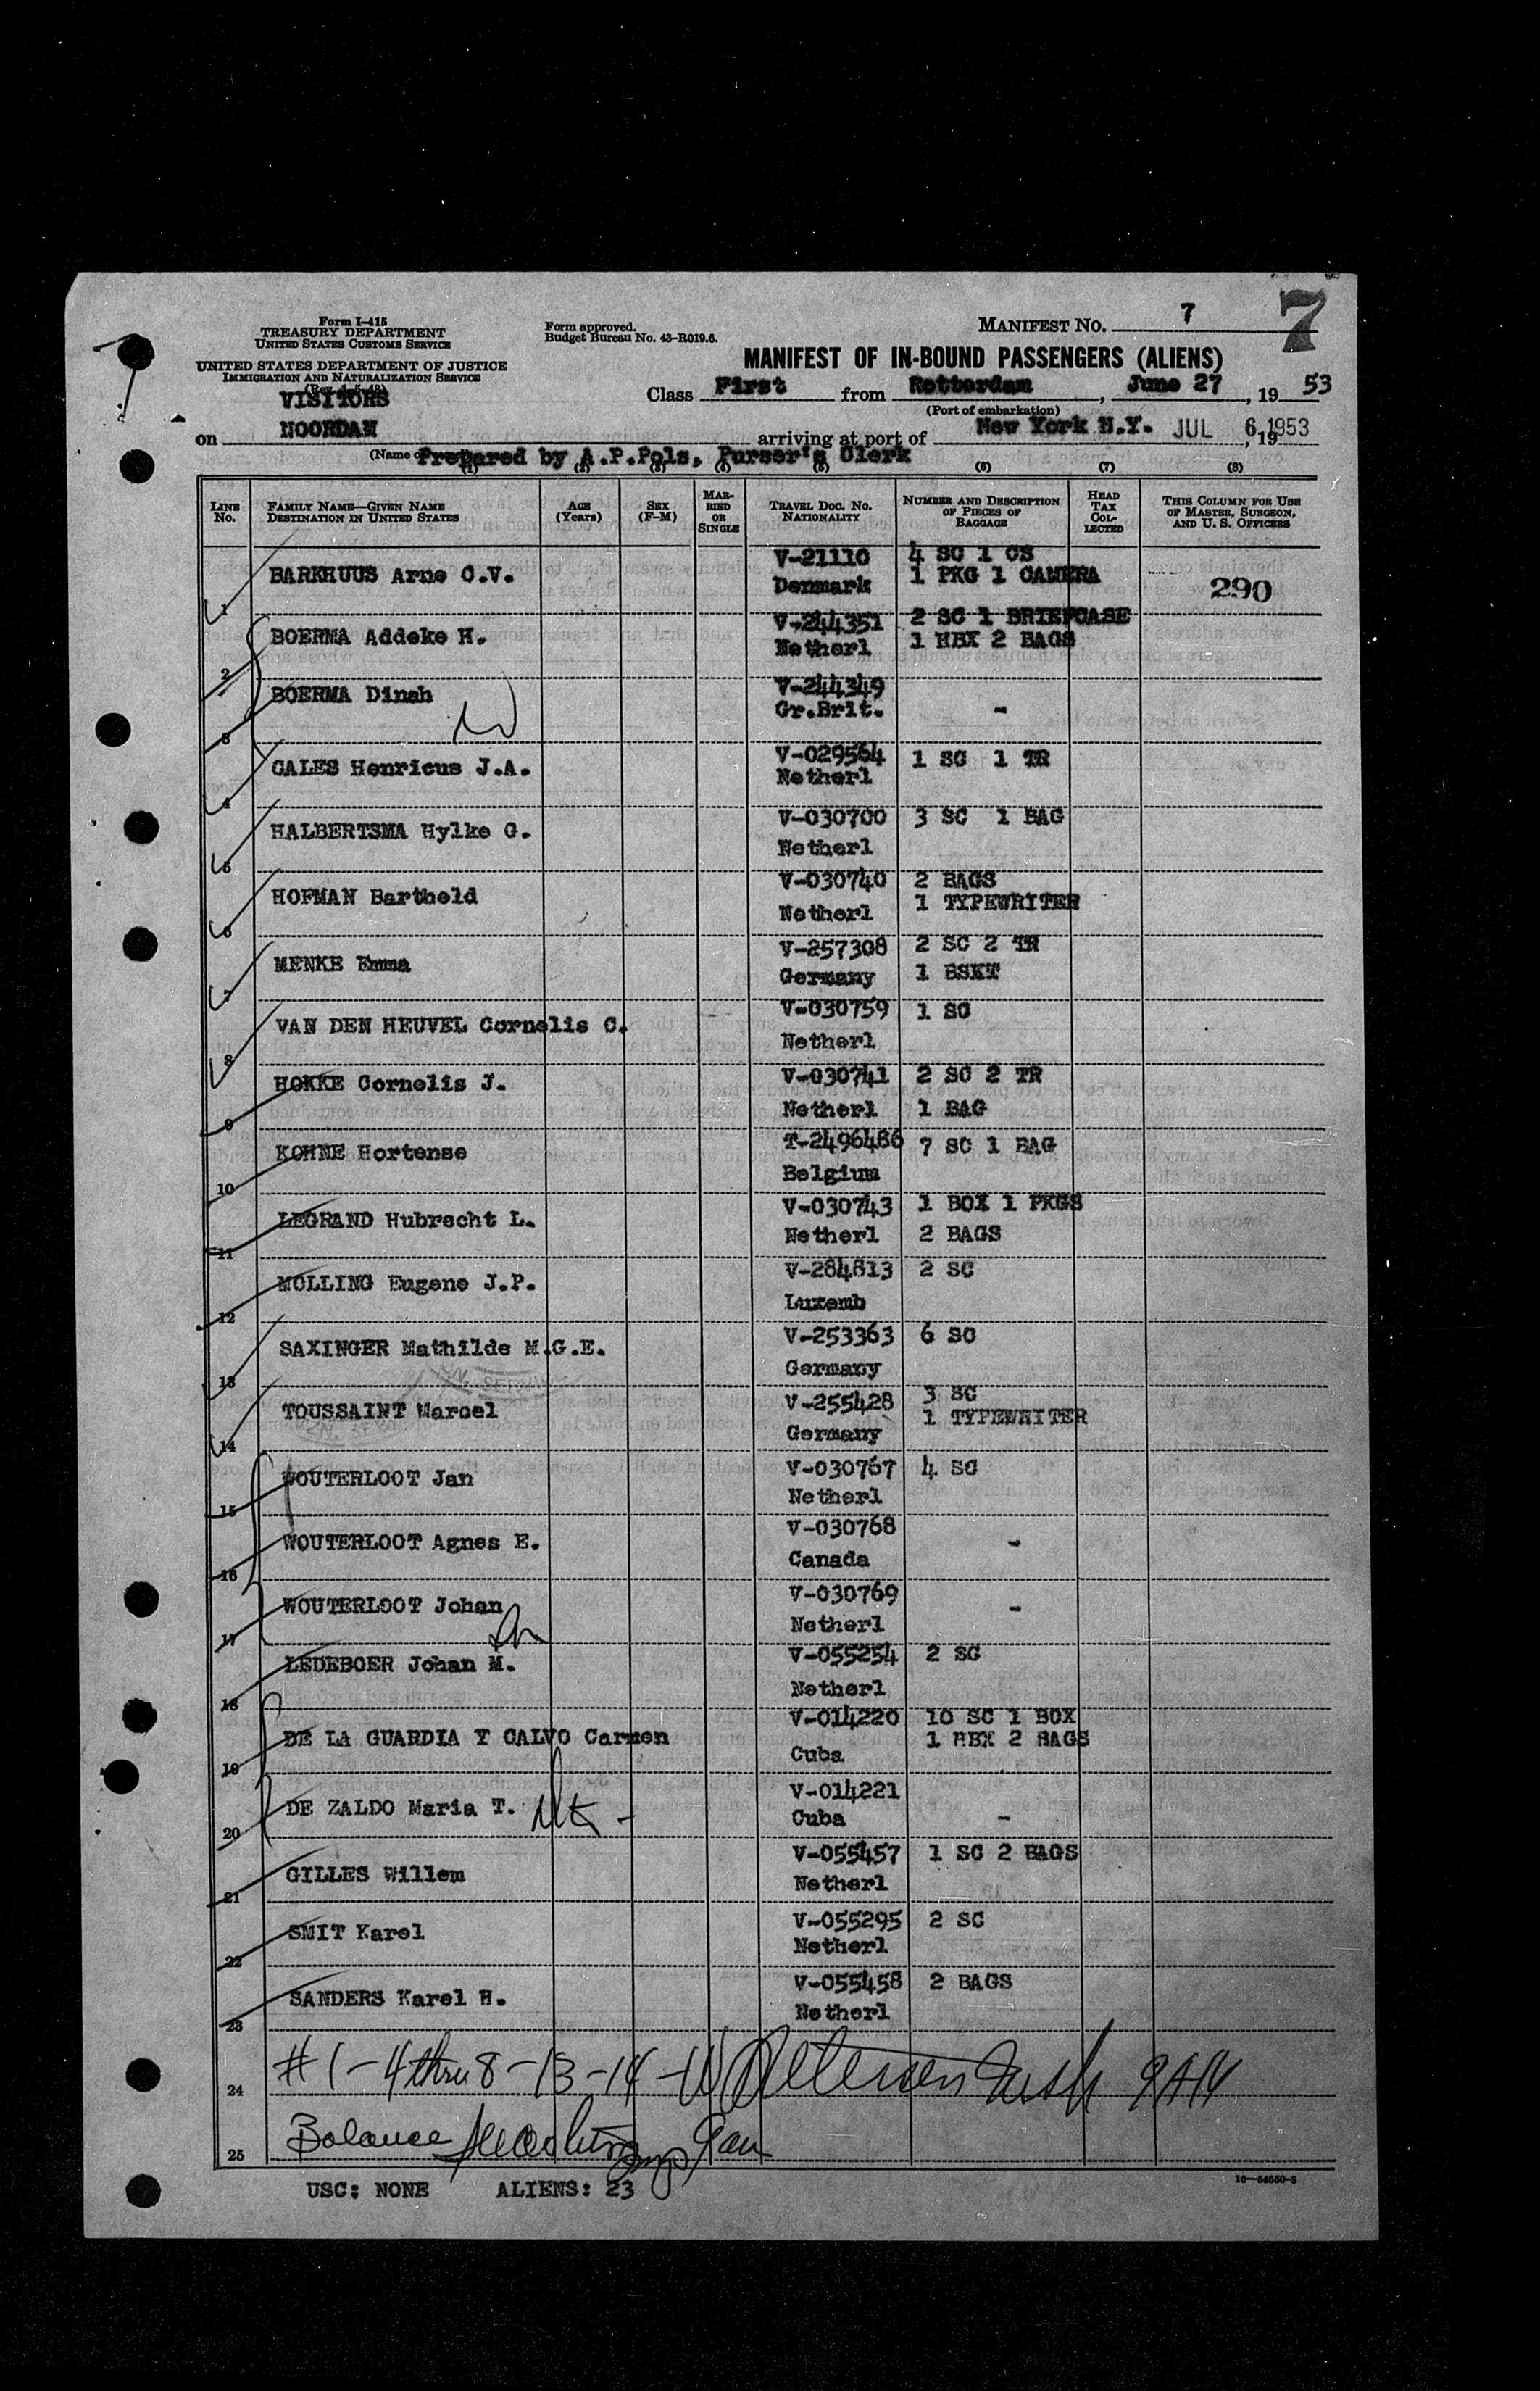 Form I-415
TREASURY DEPARTMENT
UNITED STATES CUSTOMS SERVICE
UNITED STATES DEPARTMENT OF JUSTICE
IMMIGRATION AND NATURALIZATION SERVICE
Form approved.
Budget Bureau No. 43-R019.6.
MANIFEST NO. 7
7
MANIFEST OF IN-BOUND PASSENGERS (ALIENS)
VISITORS
Class First from Rotterdam, June 27, 19 53
(Port of embarkation)
on NOORDAM arriving at port of New York N.Y. JUL 6, 1953
Prepared by A.P.Pols, Purser's Clerk
(6) (7) (8)
LINE No. FAMILY NAME—GIVEN NAME DESTINATION IN UNITED STATES AGE (Years) SEX (F-M) MARRIED OR SINGLE TRAVEL DOC. No. NATIONALITY NUMBER AND DESCRIPTION OF PIECES OF BAGGAGE HEAD TAX COLLECTED THIS COLUMN FOR USE OF MASTER, SURGEON, AND U. S. OFFICERS
1 BARKHUUS Arne C.V. V-21110 Denmark 4 SC 1 CS 1 PKG 1 CAMERA 290
2 BOERMA Addeke H. V-244351 Netherl 2 SC 1 BRIEFCASE 1 HBX 2 BAGS
3 BOERMA Dinah V-244349 Gr.Brit. -
4 CALES Henricus J.A. V-029564 Netherl 1 SC 1 TR
5 HALBERTSMA Hylke G. V-030700 Netherl 3 SC 1 BAG
6 HOFMAN Bartheld V-030740 Netherl 2 BAGS 1 TYPEWRITER
7 MENKE Emma V-257308 Germany 2 SC 2 TR 1 BSKT
8 VAN DEN HEUVEL Cornelis C. V-030759 Netherl 1 SC
9 HOKKE Cornelis J. V-030741 Netherl 2 SC 2 TR 1 BAG
10 KOHNE Hortense T-2496486 Belgium 7 SC 1 BAG
11 LEGRAND Hubrecht L. V-030743 Netherl 1 BOX 1 PKGS 2 BAGS
12 MOLLING Eugene J.P. V-284813 Luxemb 2 SC
13 SAXINGER Mathilde M.G.E. V-253363 Germany 6 SC
14 TOUSSAINT Marcel V-255428 Germany 3 SC 1 TYPEWRITER
15 WOUTERLOOT Jan V-030767 Netherl 4 SC
16 WOUTERLOOT Agnes E. V-030768 Canada -
17 WOUTERLOOT Johan V-030769 Netherl -
18 LEDEBOER Johan M. V-055254 Netherl 2 SC
19 DE LA GUARDIA Y CALVO Carmen V-014220 Cuba 10 SC 1 BOX 1 HBX 2 BAGS
20 DE ZALDO Maria T. V-014221 Cuba -
21 GILLES Willem V-055457 Netherl 1 SC 2 BAGS
22 SMIT Karel V-055295 Netherl 2 SC
23 SANDERS Karel H. V-055458 Netherl 2 BAGS
24 #1-4 thru 8-13-14
25 Balance
USC: NONE ALIENS: 23
16—54650-3